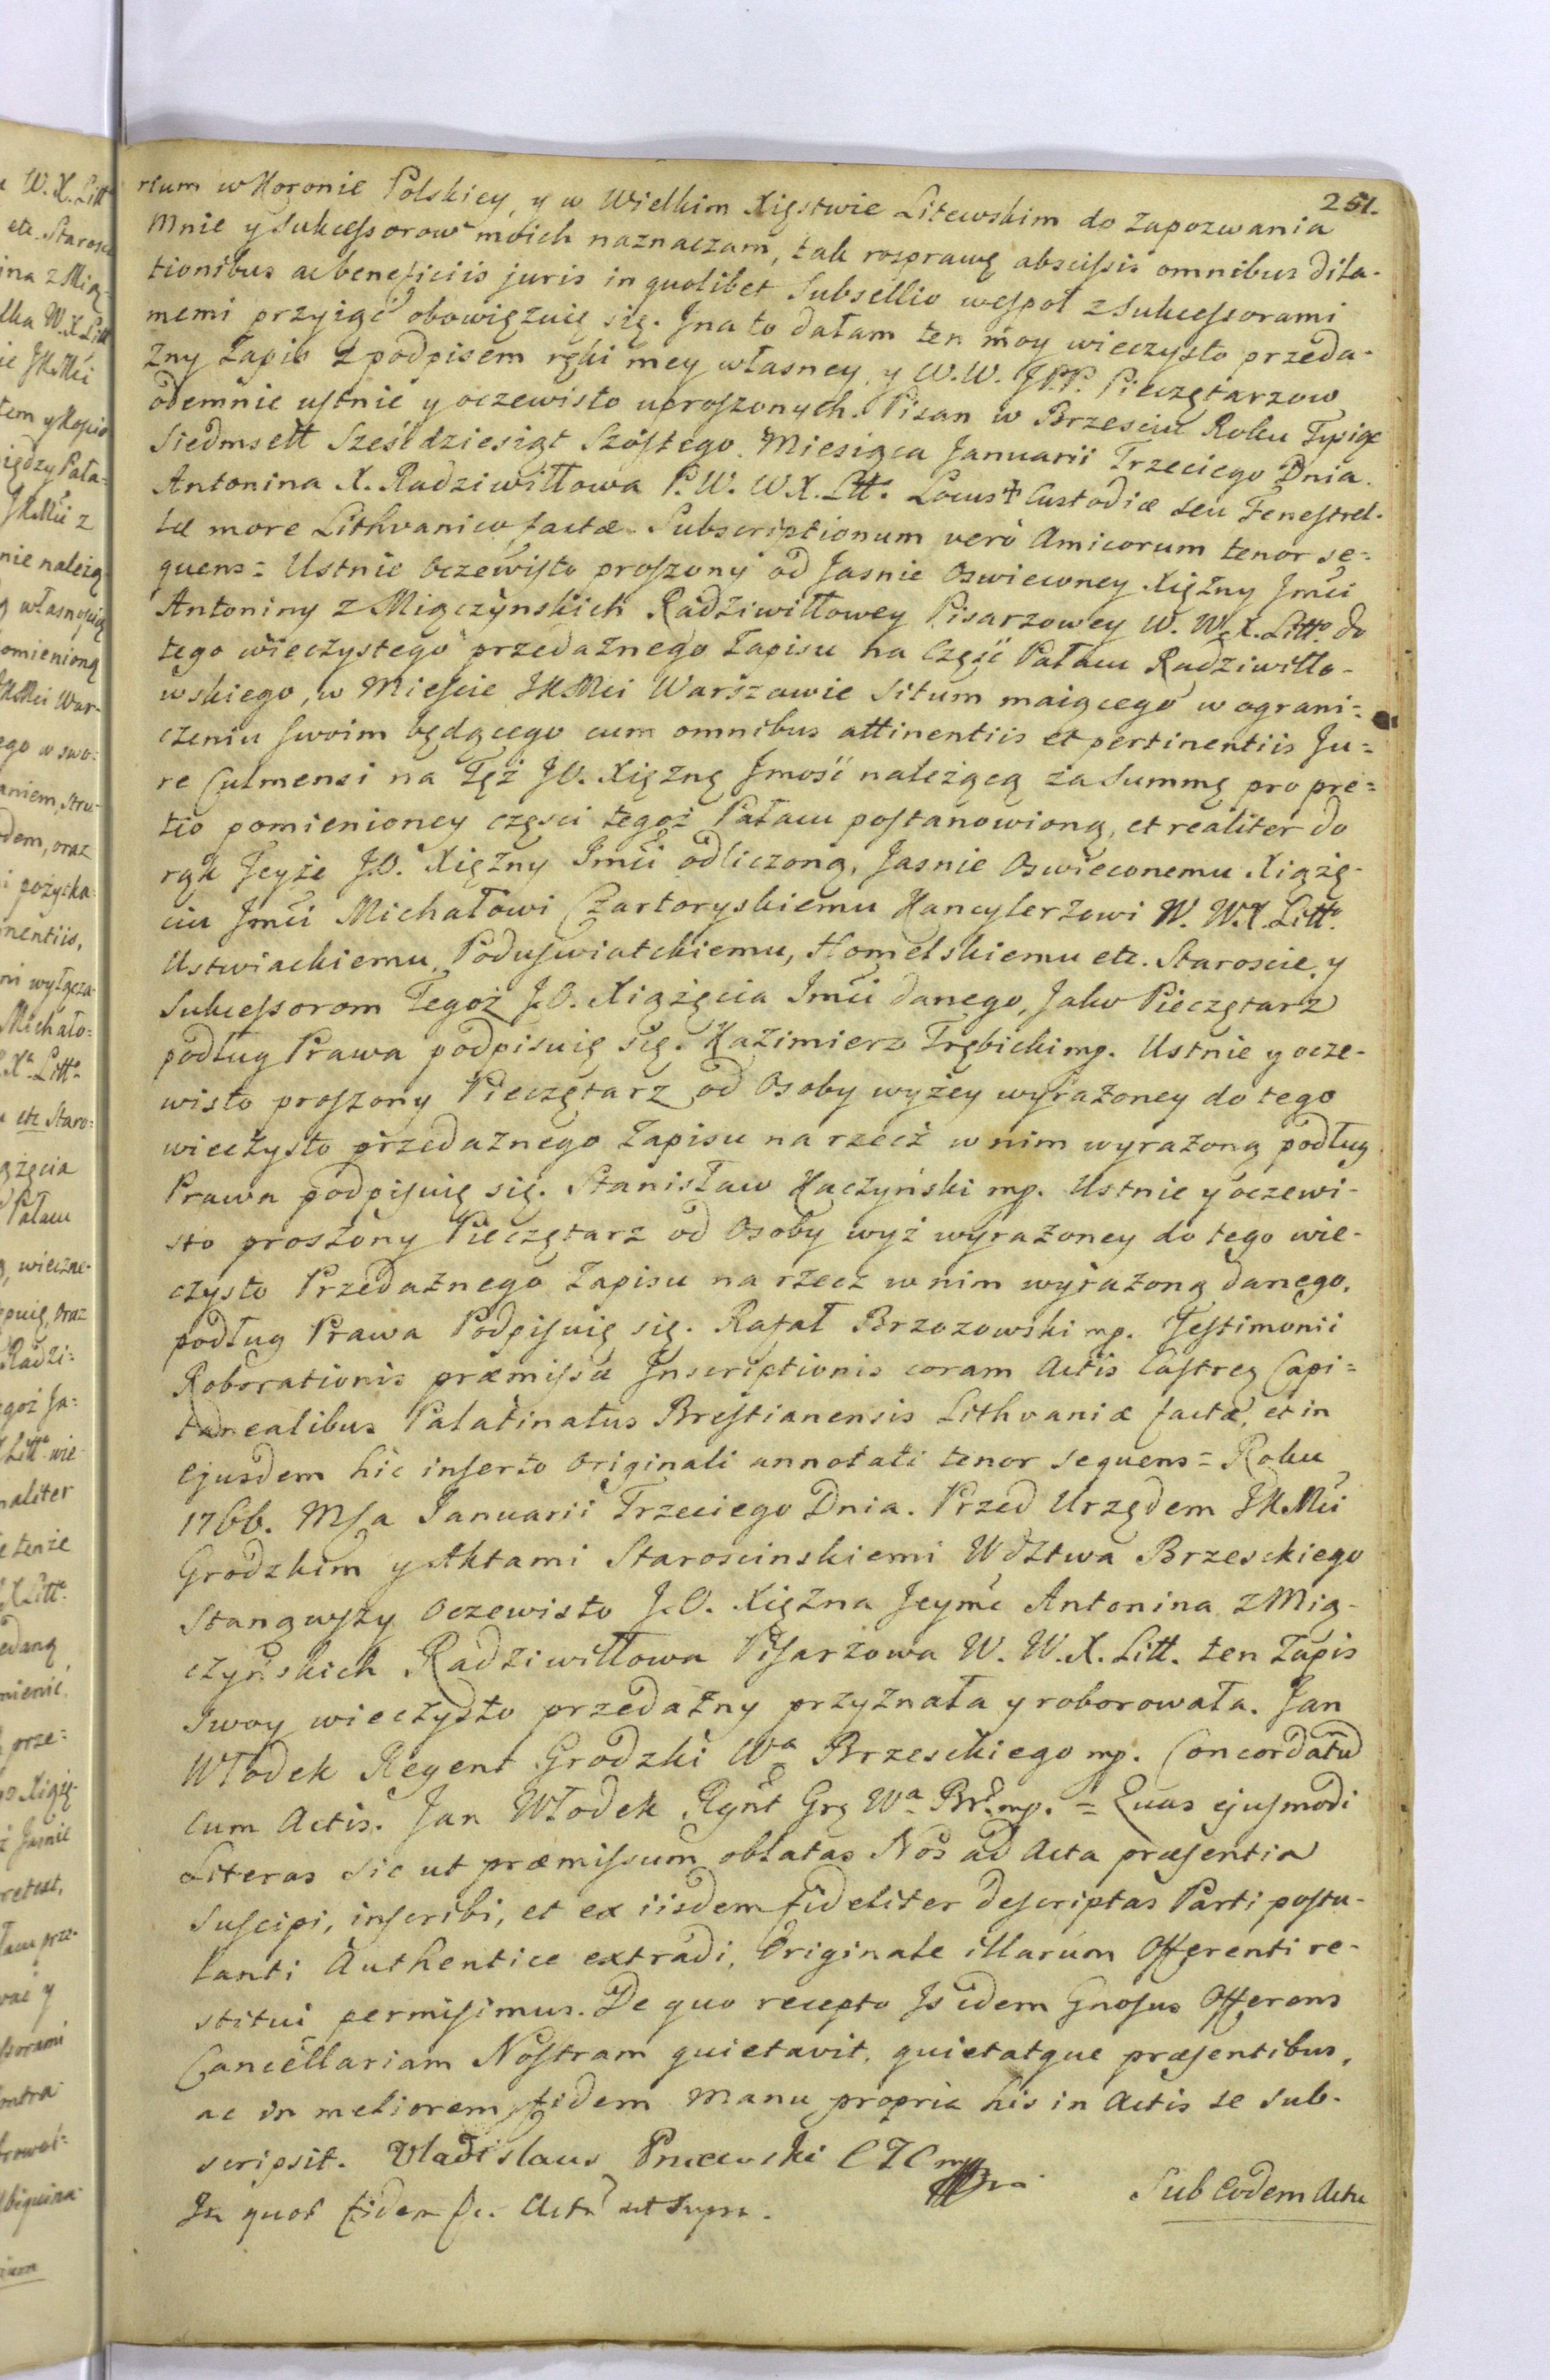 251.
rium w Koronie Polskiey, y w Wielkim Xięstwie Litewskim do zapozwania
Mnie y Sukcessorow moich naznaczam, tak rosprawę abscissis omnibus dila-
tionibus ac beneficiis juris in quolibet Subsellio wespoł z Sukcessorami
memi przyiąć obowięzuię się. Jna to dałam ten moy wieczysto przeda-
żny Zapis z podpisem ręki mey własney, y W.W. JP.P. Pieczętarzow
odemnie ustnie y oczewisto uproszonych. Pisan w Brzesciu Roku Tysiąc
Siedmsett Sześćdziesiąt Szóstego. Miesiąca Januarii Trzeciego Dnia.
Antonina X. Radziwiłłowa P. W. W.X. Litt. Locus + Custodiæ seu Fenestrel-
læ more Lithvanico factæ. Subscriptionum verò Amicorum tenor se-
quens = Ustnie oczewisto proszony od Jasnie Oswieconey Xiężny Jmci
Antoniny z Miączyńskich Radziwiłłowey Pisarzowey W. W.X. Litto do
tego wieczystego przedażnego Zapisu na Część Pałacu Radziwiłło-
wskiego, w Mieście JKMci Warszawie situm maiącego w ograni-
czeniu swoim będącego cum omnibus attinentiis et pertinentiis Ju-
re Culmensi na Tęż JO. Xiężnę Jmość należącą za Summę pro pre-
tio pomienioney części tegoż Pałacu postanowioną, et realiter do
rąk Jeyże J.O. Xiężny Jmci odliczoną, Jasnie Oswieconemu Xiążę-
ciu Jmci Michałowi Czartoryskiemu Kanclerzowi W. W.X. Litt.
Ustwiackiemu, Poduswiatckiemu, Homelskiemu etc. Staroscie, y
Sukcessorom Tegoż J.O. Xiążęcia Jmci danego, Jako Pieczętarz
podług Prawa podpisuię się. Kazimierz Trębicki mp. Ustnie y ocze-
wisto proszony Pieczętarz od Osoby wyżey wyrażoney do tego
wieczysto przedażnego Zapisu na rzecz w nim wyrażoną podług
Prawa podpisuię się. Stanisław Kaczyński mp. Ustnie y oczewi-
sto proszony Pieczętarz od Osoby wyż wyrażoney do tego wie-
czysto Przedażnego Zapisu na rzecz w nim wyrażoną danego,
podług Prawa Podpisuię się. Rafał Brzozowski mp. Testimonii
Roborationis præmissæ Inscriptionis coram Actis Castren Capi-
tanealibus Palatinatus Brestianensis Lithvaniæ factæ, et in
ejusdem hic inserto Originali annotati tenor sequens = Roku
1766. Msa Januarii Trzeciego Dnia. Przed Urzędem JKMci
Grodzkim y Aktami Staroscinskiemi Wdztwa Brzesckiego
Stanąwszy Oczewisto J.O. Xiężna Jeymć Antonina z Mią-
czyńskich Radziwiłłowa Pisarzowa W. W.X. Litt. ten Zapis
swoy wieczysto przedażny przyznała y roborowała. Jan
Włodek Regent Grodzki Wa Brzesckiego mp. Concordatum
cum Actis. Jan Włodek Rgnt Grz Wa Br. mp. = Quas ejusmodi
Literas sic ut præmissum oblatas Nos ad Acta præsentia
suscipi, inscribi, et ex iisdem fideliter descriptas Parti postu-
lanti Authentice extradi, Originale illarum Offerenti re-
stitui permisimus. De quo recepto Is idem Gnosus Offerens
Cancellariam Nostram quietavit, quietatque præsentibus,
ac in meliorem fidem manu propria his in Actis se sub-
scripsit. Vladislaus
In quor fidem Actu ut supra.
Sub Eodem Actu